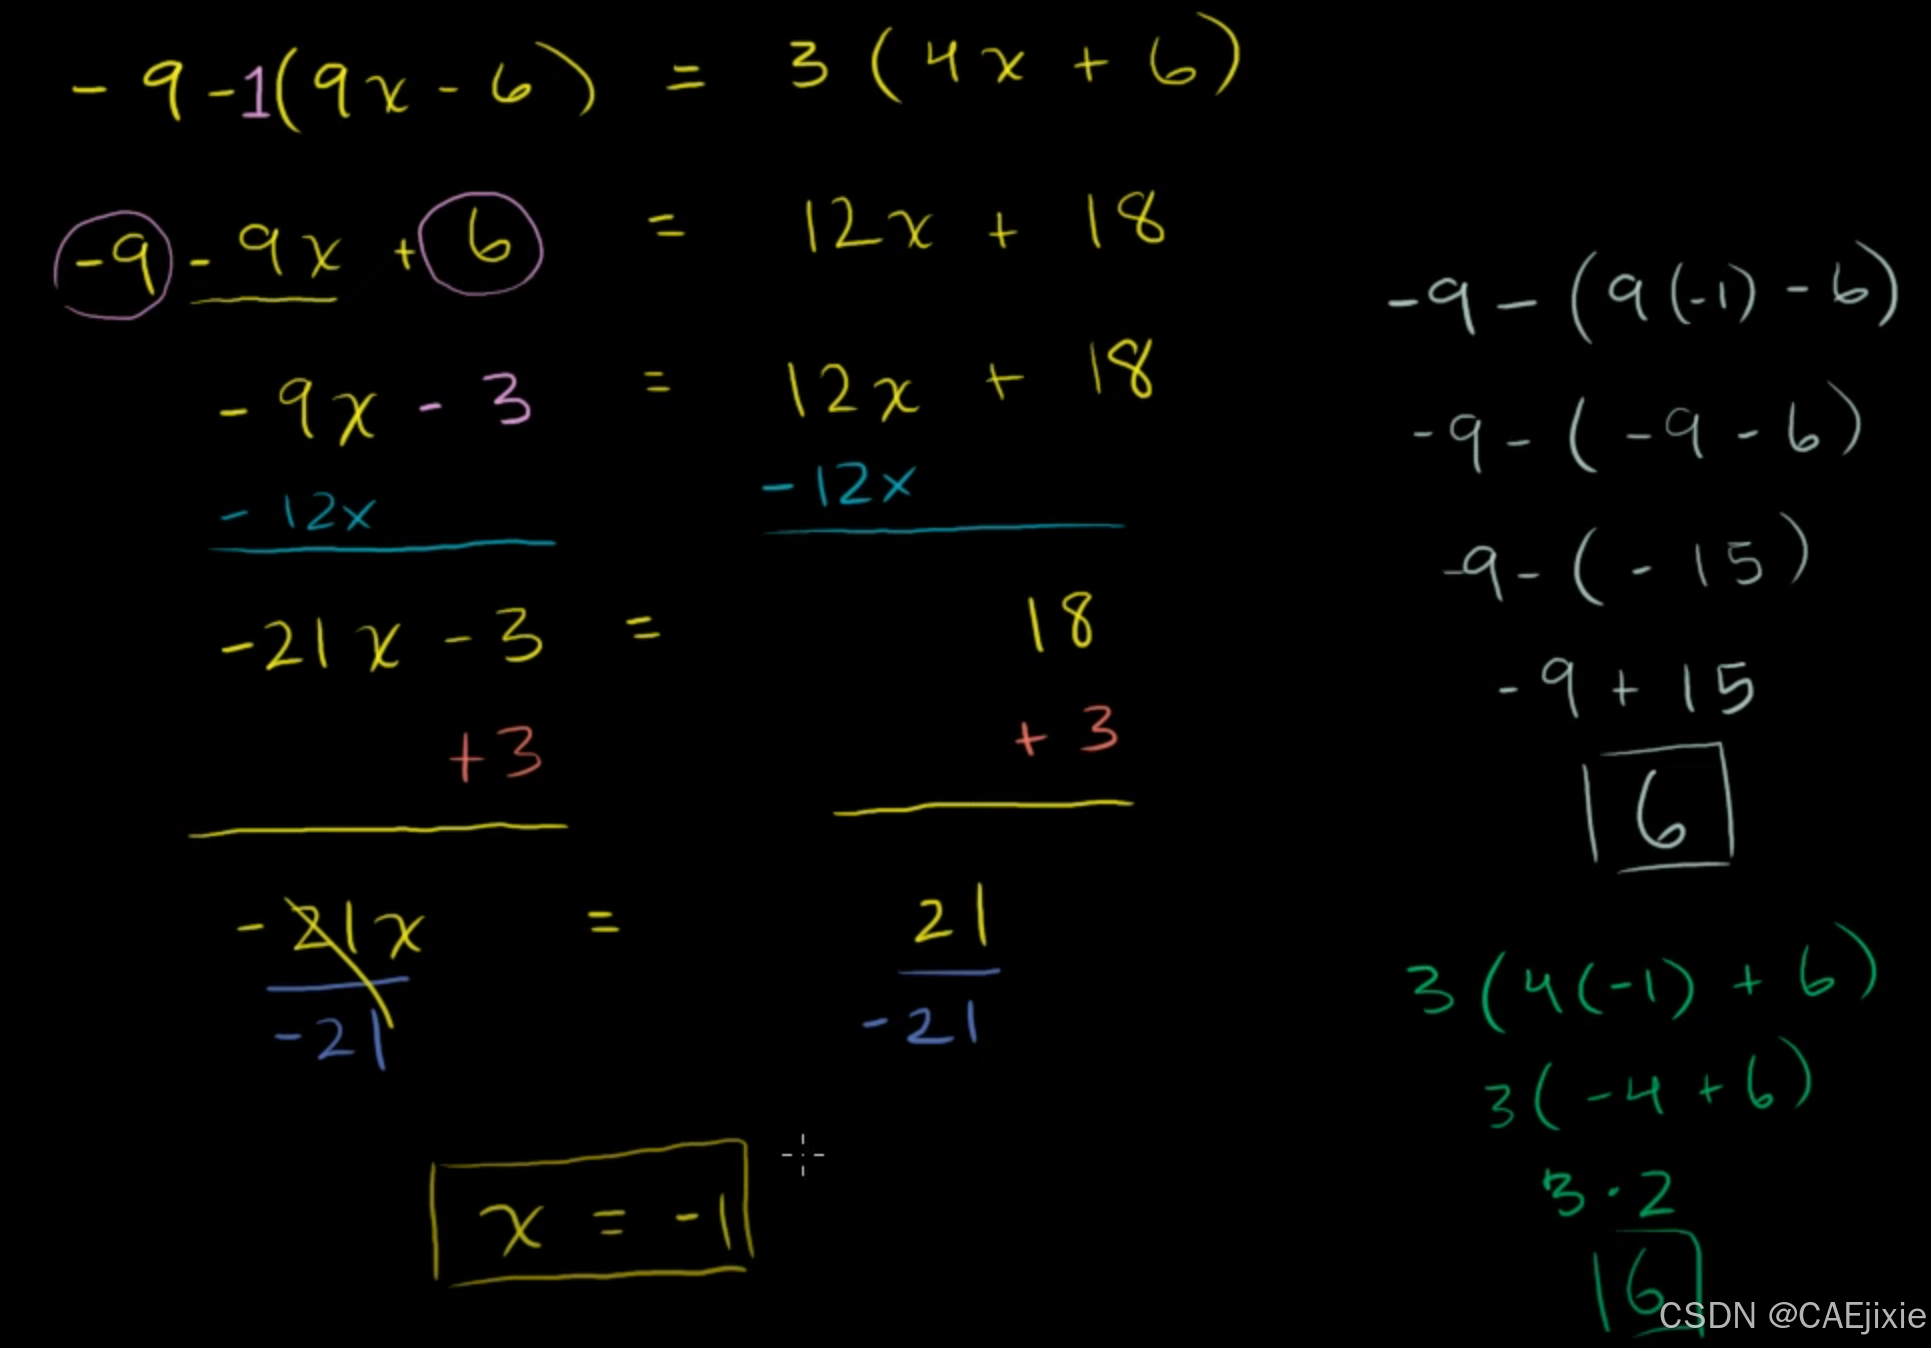 -9 -1(9x - 6) = 3(4x + 6)
-9 - 9x + 6 = 12x + 18
-9x - 3 = 12x + 18
-12x -12x
-21x - 3 = 18
+3 +3
-21x = 21
-21 -21
x = -1
-9 - (9(-1) - 6)
-9 - (-9 - 6)
-9 - (-15)
-9 + 15
6
3(4(-1) + 6)
3(-4 + 6)
3 · 2
6
CSDN @CAEjixie